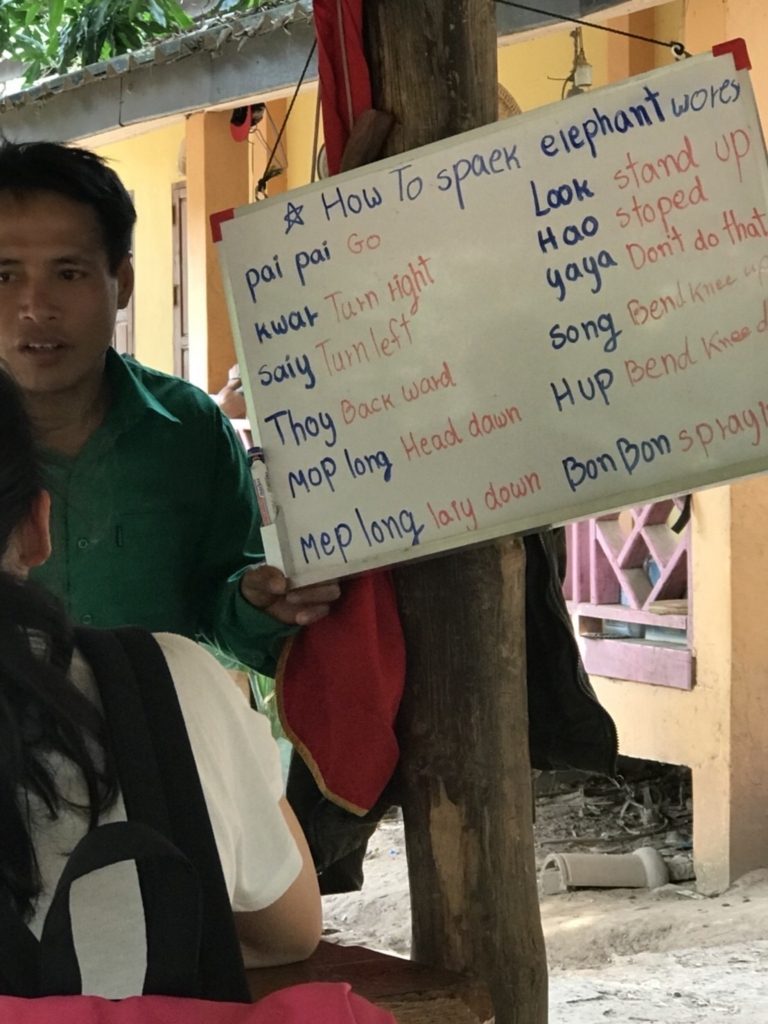 ☆ How To spaek elephant wores
pai pai Go
kwar Turn right
saiy Turn left
Thoy Back ward
Mop long Head dawn
Mep long laiy down
Look stand up
Hao stoped
yaya Don't do that
song Bend knee up
Hup Bend knee
Bon Bon